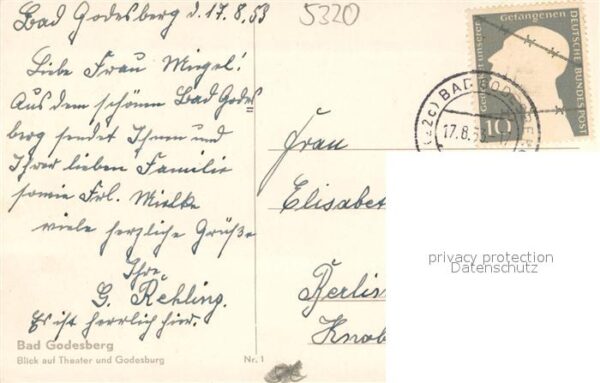 Bad Godesberg d. 17.8.53
5320
Liebe Frau Miegel!
Aus dem schönen Bad Godes
berg sendet Ihnen und
Ihrer lieben Familie
sowie Frl. Mielke
viele herzliche Grüße
Ihre
G. Rehling.
Es ist herrlich hier.
Bad Godesberg
Blick auf Theater und Godesburg
Nr. 1
Gefangenen
DEUTSCHE BUNDESPOST
10
(22c) BAD GODESBERG
17.8.53
Frau
Elisabet
Berlin
Knob
privacy protection
Datenschutz